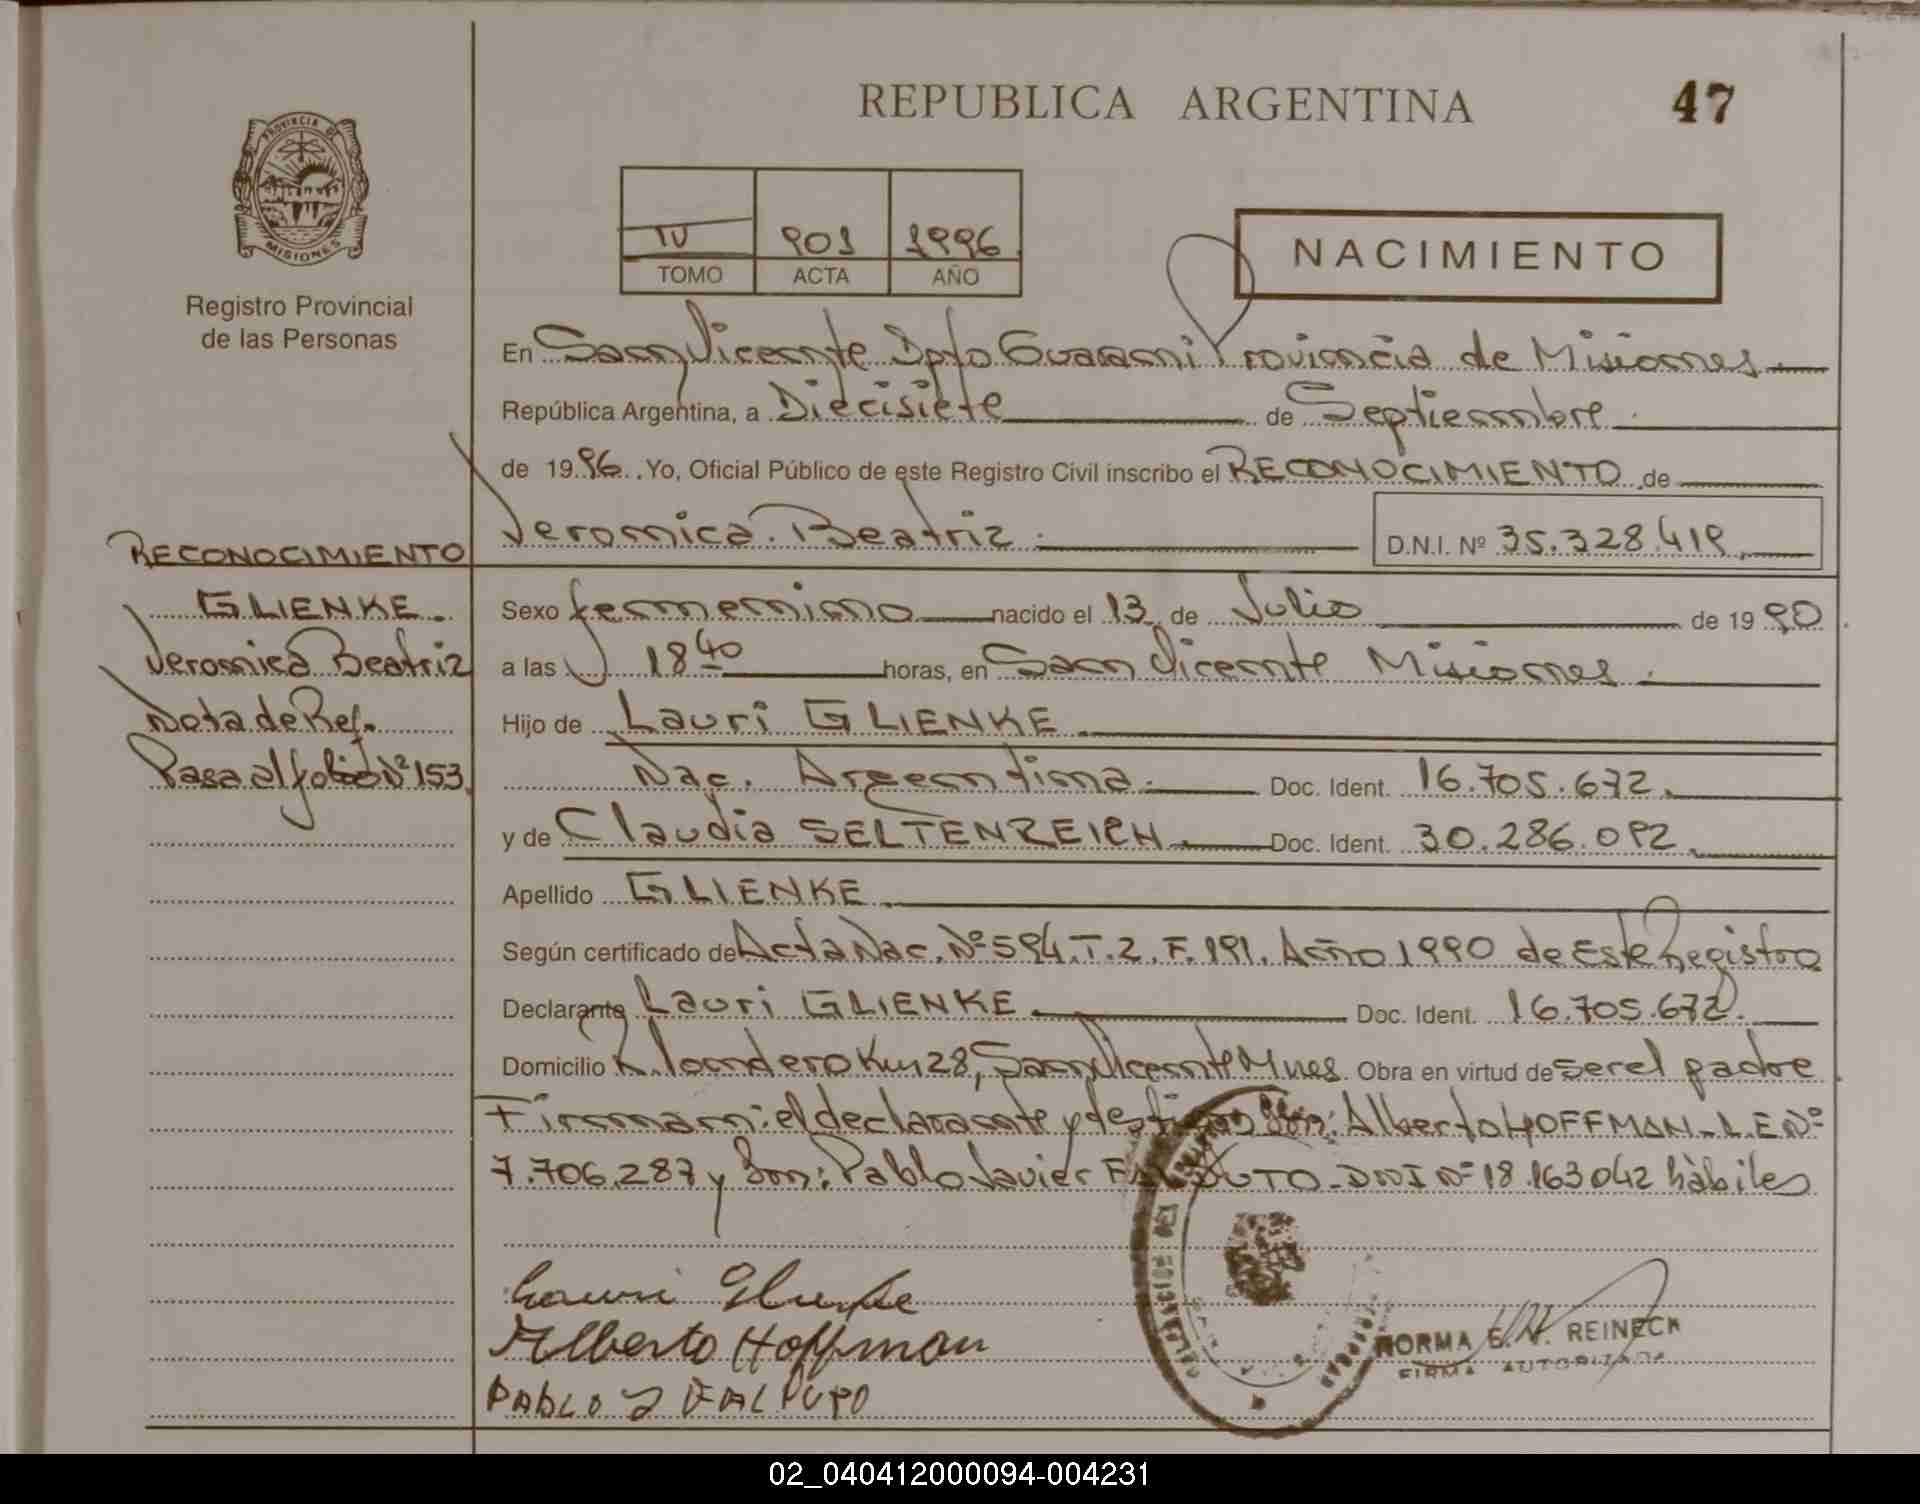 REPUBLICA ARGENTINA
47
PROVINCIA DE
MISIONES
Registro Provincial
de las Personas
IV 901 1996
TOMO ACTA AÑO
NACIMIENTO
En San Vicente Dpto Guarani Provincia de Misiones.
República Argentina, a Diecisiete de Septiembre.
de 1996. Yo, Oficial Público de este Registro Civil inscribo el RECONOCIMIENTO de
Veronica Beatriz. D.N.I. Nº 35.328.419.
RECONOCIMIENTO
GLIENKE.
Veronica Beatriz
Nota de Ref.
Pasa al folio Nº 153.
Sexo femenino nacido el 13 de Julio de 1990
a las 18 40 horas, en San Vicente Misiones.
Hijo de Lauri GLIENKE.
Nac. Argentina. Doc. Ident. 16.705.672.
y de Claudia SELTENREICH. Doc. Ident. 30.286.092.
Apellido GLIENKE.
Según certificado de Acta Nac. Nº 594. T. 2. F. 191. Año 1990 de Este Registro
Declarante Lauri GLIENKE. Doc. Ident. 16.705.672.
Domicilio R. londero Km 28, San Vicente Mnes. Obra en virtud de ser el padre
Firman: el declarante y testigos Don: Alberto HOFFMAN - L.E Nº
7.706.287 y Don: Pablo Javier DNI Nº 18.163042 hàbiles
Lauri Glienke
Alberto Hoffman
PABLO J
NORMA E. REINECK
FIRMA AUTORIZADA
02_040412000094-004231